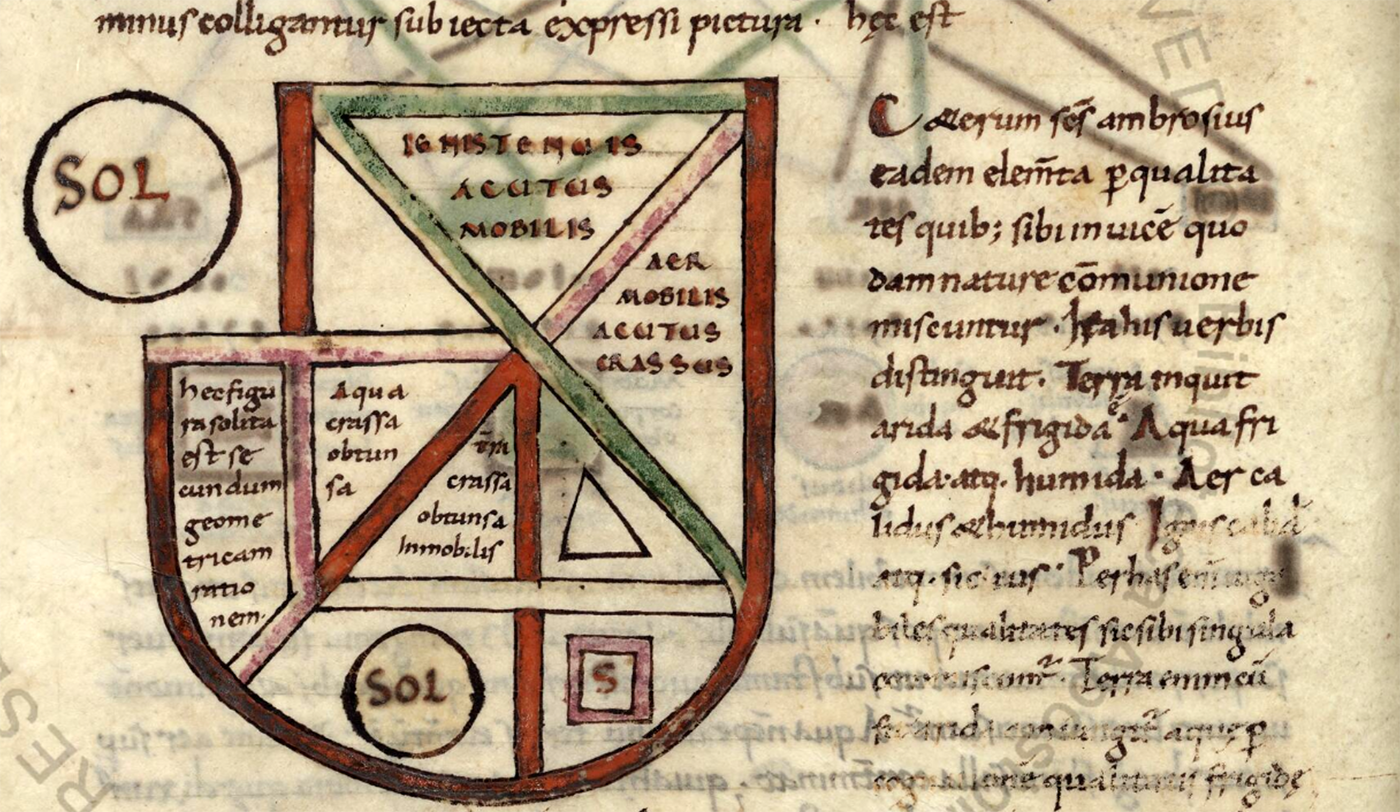 minus colligantur subiecta expressi pictura · hęc est
SOL
IGNIS TENUIS
ACUTUS
MOBILIS
AER
MOBILIS
ACUTUS
CRASSUS
hec figu
ra solita
est se
cundum
geome
tricam
ratio
nem·
Aqua
crassa
obtun
sa
t̄ra
crassa
obtunsa
Inmobilis
SOL
S
C &erum sc̄s ambrosius
eadem elem̄ta p̱qualita
tes quib; sibi inuicē quo
dam nature cōmunione
miscuntur · Ita his uerbis
distinguit · Terra inquit
arida & frigida · Aqua fri
gida· atq· humida · Aer ca
lidus & humidus · Ignis calid
atq· siccus · Per has eni iuga
biles qualitates sic sibi singula
Terra enim cū
aque p̱
qualitatis frigide